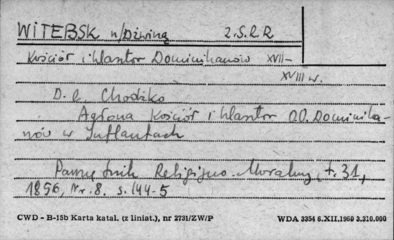 WITEBSK n/Dźwiną Z.S.R.R
Kościół i klasztor Dominikanów XVII-
XVIII w.
D. C. Chodźko
Agłona Kościół i klasztor OO. Dominika-
nów w Inflantach
Pamiętnik Religijno-Moralny, t. 31,
1856, Nr. 8. s. 144-5
CWD - B-15b Karta katal. (z liniat.), nr 2731/ZW/P WDA 3354 6.XII.1969 3.310.000